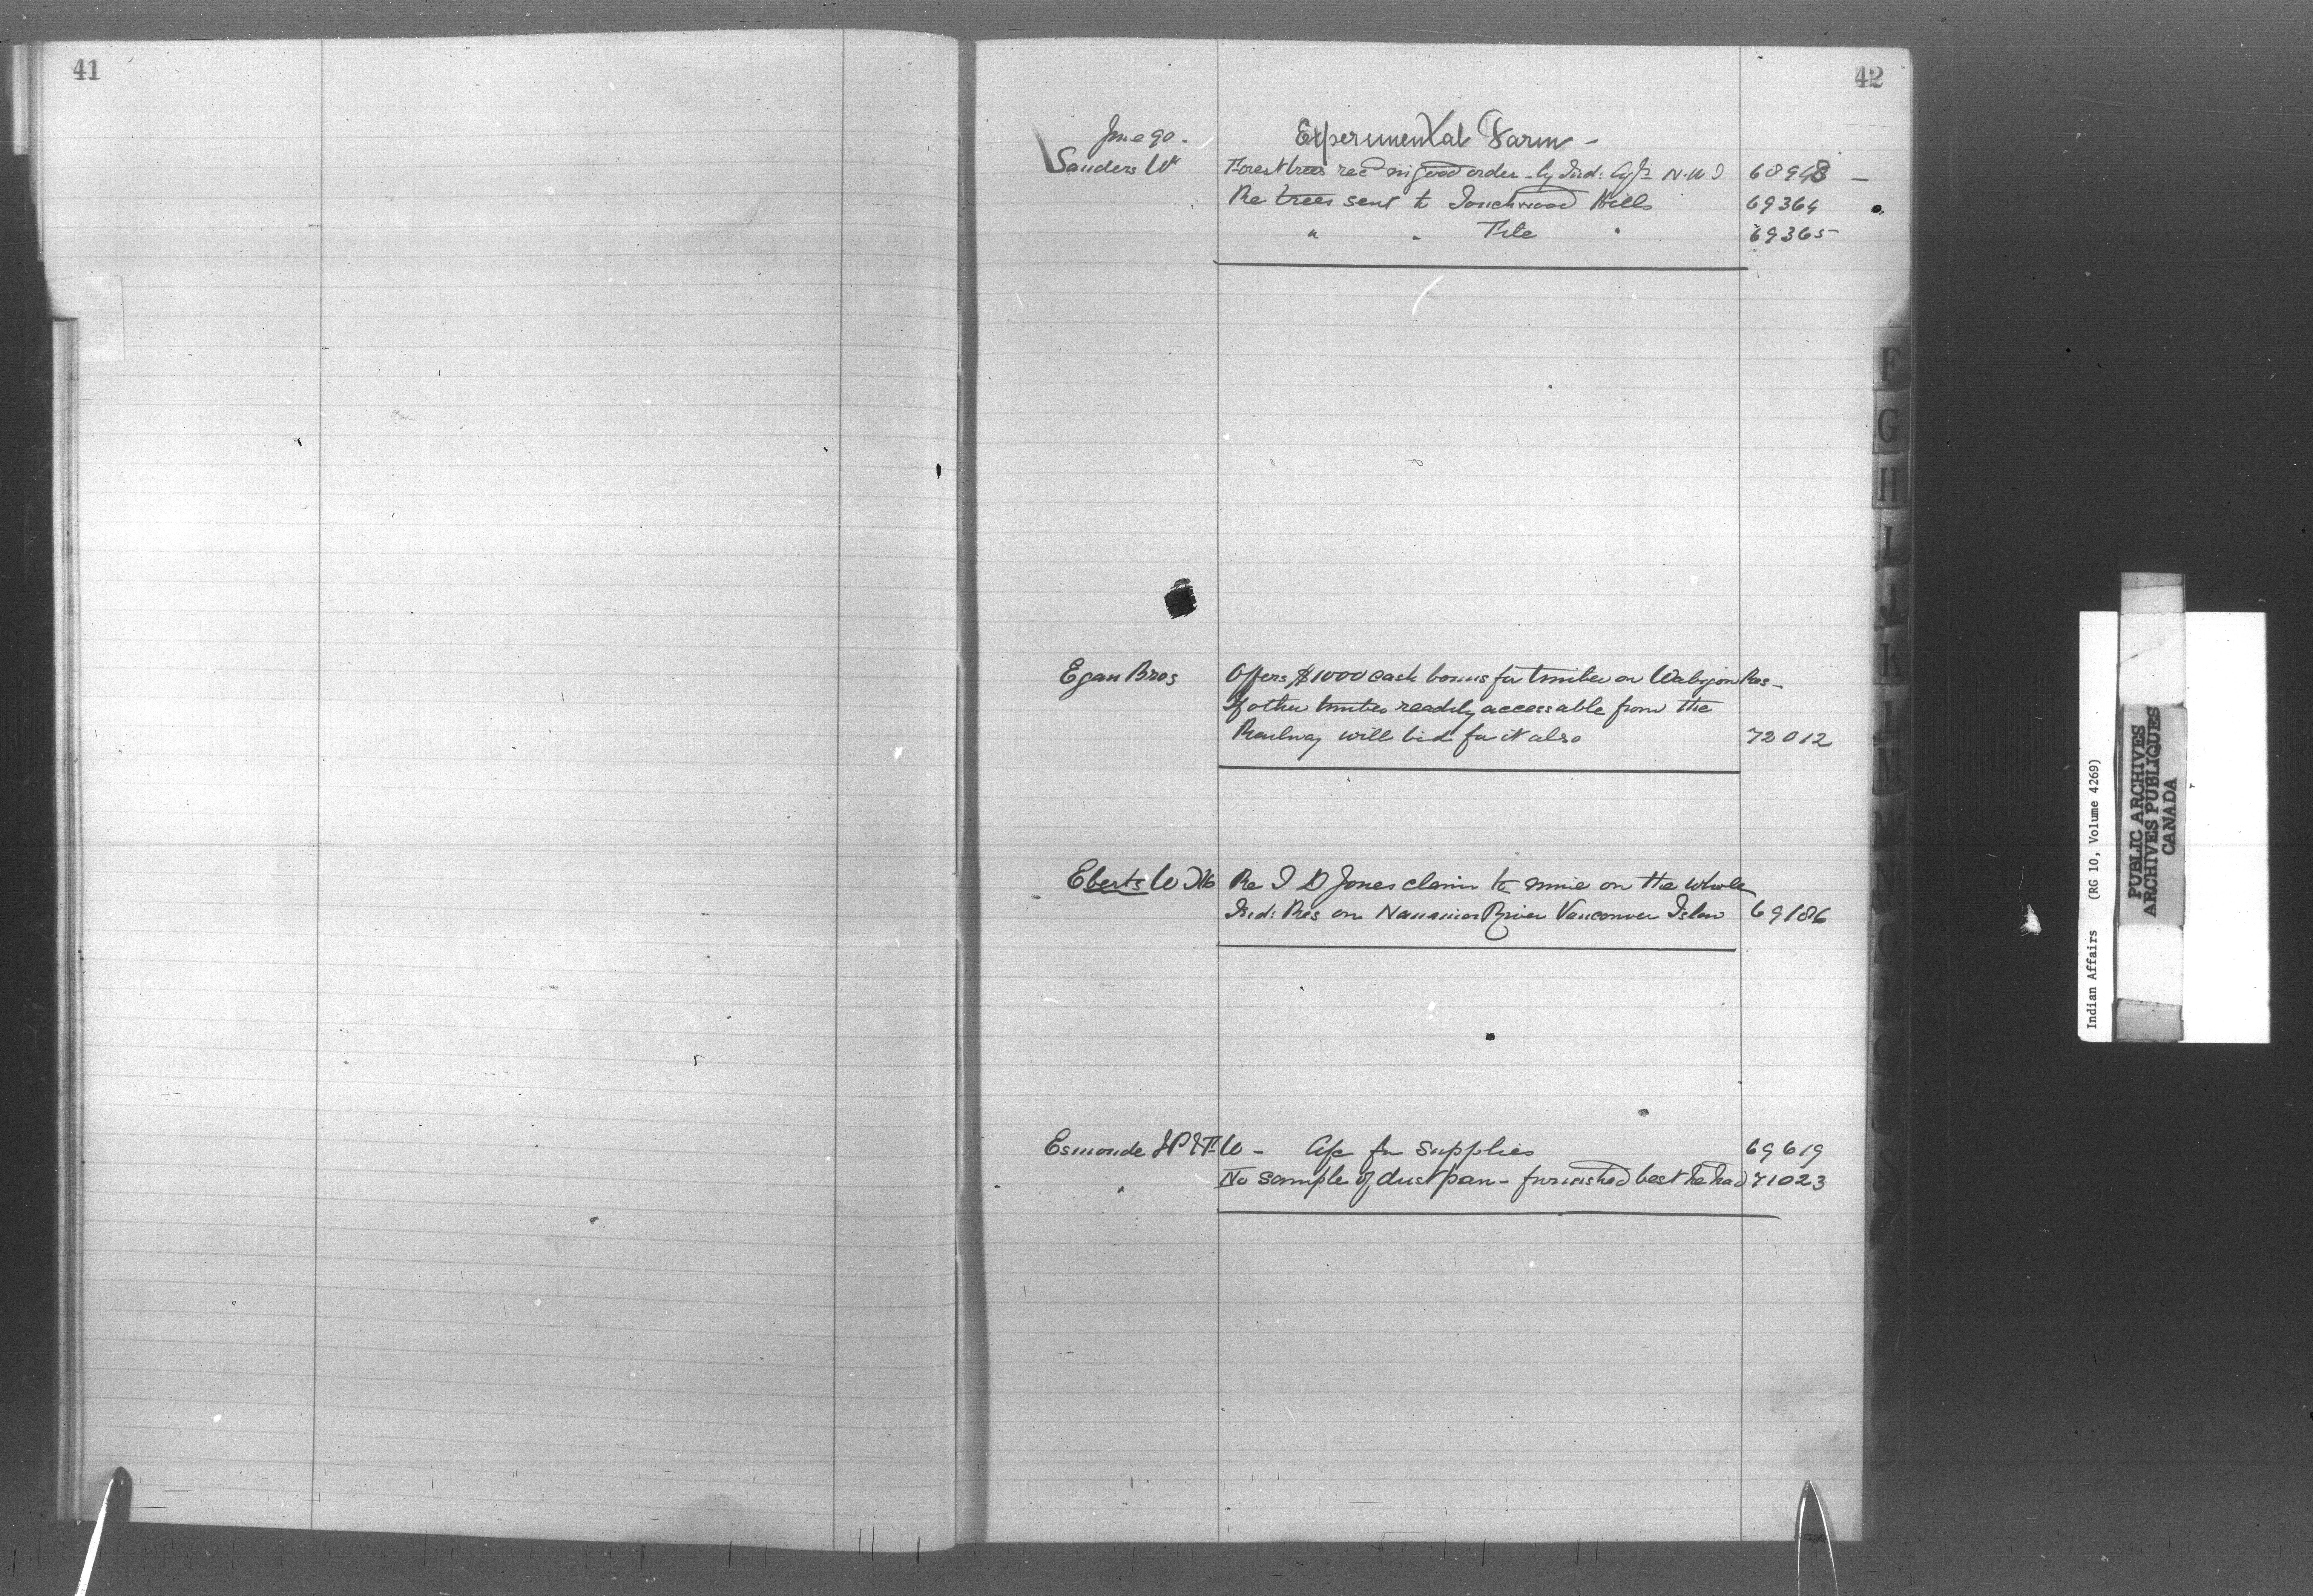 41
42
June 90.
Experimental Farm -
Sanders Wm Forest trees recd in good order - by Ind: Agts N.W.T 68948 -
Re trees sent to Touchwood Hills 69364
" " File " 69365
Egan Bros Offers $1000 cash bonus for timber on Wabigon Res -
If other timber readily accessable from the
Railway will bid for it also 72012
Eberts W Re I D Jones claim to mine on the whole
Ind: Res on Nanaimo River Vancouver Islan 69186
Esmonde J P & F. W - A/c for Supplies 69619
No sample of dust pan - furnished best he had 71023
F
G
H
I
J
K
L
M
Indian Affairs (RG 10, Volume 4269)
PUBLIC ARCHIVES
ARCHIVES PUBLIQUES
CANADA